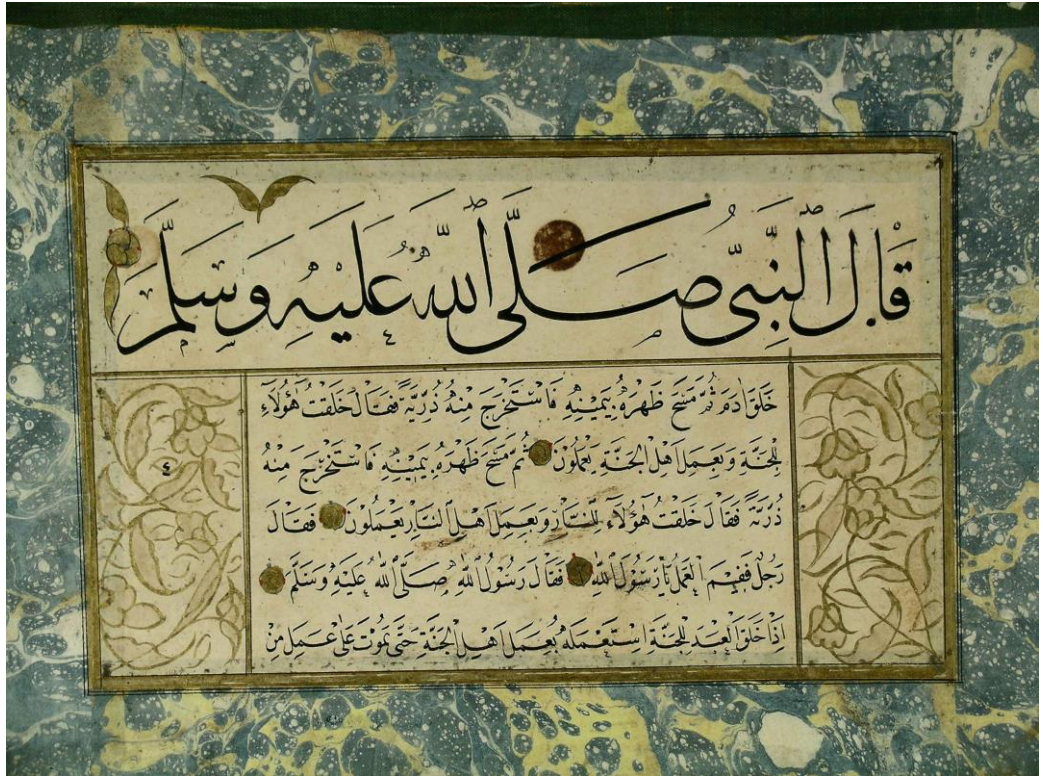 قَالَ النَّبِيُّ صَلَّى اللهُ عَلَيْهِ وَسَلَّمَ
خَلَقَ اٰدَمَ ثُمَّ مَسَحَ ظَهْرَهُ بِيَمِينِهِ فَاسْتَخْرَجَ مِنْهُ ذُرِّيَّةً فَقَالَ خَلَقْتُ هٰؤُلَاءِ
لِلْجَنَّةِ وَبِعَمَلِ اَهْلِ الْجَنَّةِ يَعْمَلُونَ ثُمَّ مَسَحَ ظَهْرَهُ بِيَمِينِهِ فَاسْتَخْرَجَ مِنْهُ
ذُرِّيَّةً فَقَالَ خَلَقْتُ هٰؤُلَاءِ لِلنَّارِ وَبِعَمَلِ اَهْلِ النَّارِ يَعْمَلُونَ فَقَالَ
رَجُلٌ فَفِيمَ الْعَمَلُ يَا رَسُولَ اللهِ فَقَالَ رَسُولُ اللهِ صَلَّى اللهُ عَلَيْهِ وَسَلَّمَ
اِذَا خَلَقَ الْعَبْدَ لِلْجَنَّةِ اِسْتَعْمَلَهُ بِعَمَلِ اَهْلِ الْجَنَّةِ حَتَّى يَمُوتَ عَلَى عَمَلٍ مِنْ
٤